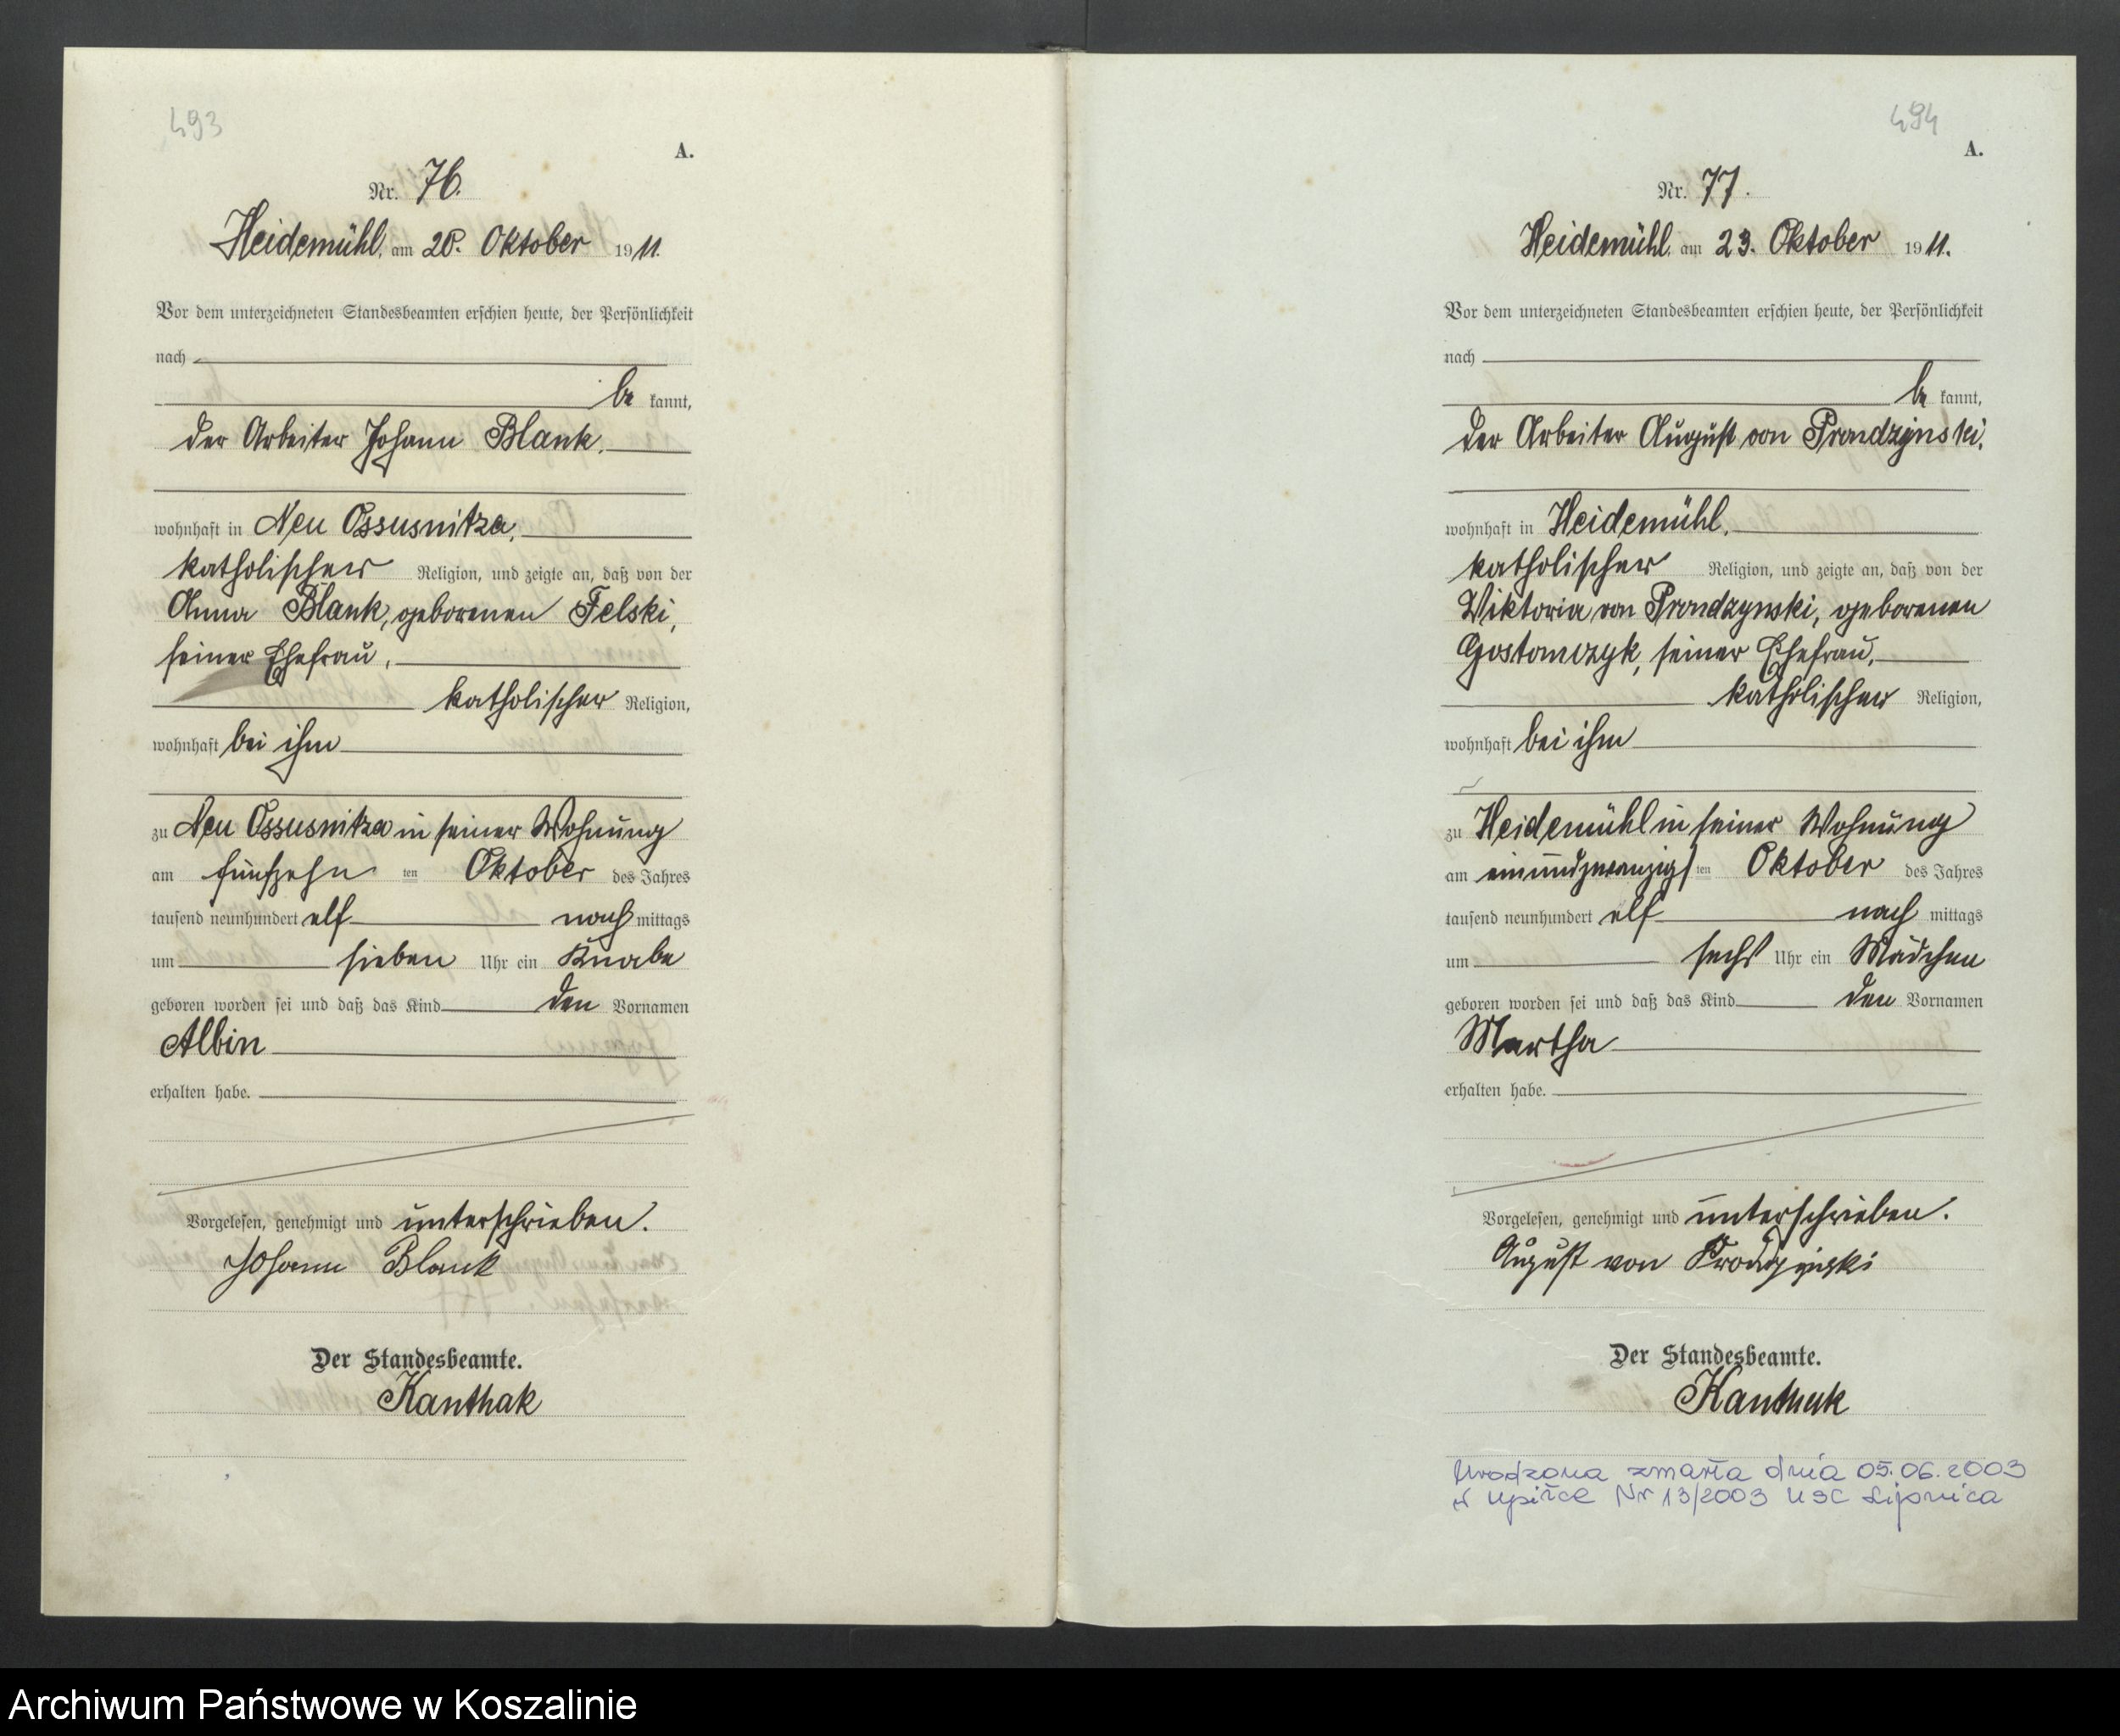 493
A.
Nr. 76.
Heidemühl, am 20. Oktober 1911.
Vor dem unterzeichneten Standesbeamten erschien heute, der Persönlichkeit
nach
be kannt,
der Arbeiter Johann Blank.
wohnhaft in Neu Ossusnitza,
katholischer Religion, und zeigte an, daß von der
Anna Blank, geborenen Felski,
seiner Ehefrau,
katholischer Religion,
wohnhaft bei ihm
zu Neu Ossusnitza in seiner Wohnung
am fünfzehn ten Oktober des Jahres
tausend neunhundert elf nach mittags
um sieben Uhr ein Knabe
geboren worden sei und daß das Kind den Vornamen
Albin
erhalten habe.
Vorgelesen, genehmigt und unterschrieben.
Johann Blank
Der Standesbeamte.
Kanthak
494
A.
Nr. 77.
Heidemühl, am 23. Oktober 1911.
Vor dem unterzeichneten Standesbeamten erschien heute, der Persönlichkeit
nach
be kannt,
der Arbeiter August von Prondzynski.
wohnhaft in Heidemühl,
katholischer Religion, und zeigte an, daß von der
Viktoria von Prondzynski, geborenen
Gostomczyk, seiner Ehefrau,
katholischer Religion,
wohnhaft bei ihm
zu Heidemühl in seiner Wohnung
am einundzwanzigsten Oktober des Jahres
tausend neunhundert elf nach mittags
um sechs Uhr ein Mädchen
geboren worden sei und daß das Kind den Vornamen
Martha
erhalten habe.
Vorgelesen, genehmigt und unterschrieben.
August von Prondzynski
Der Standesbeamte.
Kanthak
Urodzona zmarła dnia 05.06.2003
w Upiłce Nr 13/2003 USC Lipnica
Archiwum Państwowe w Koszalinie